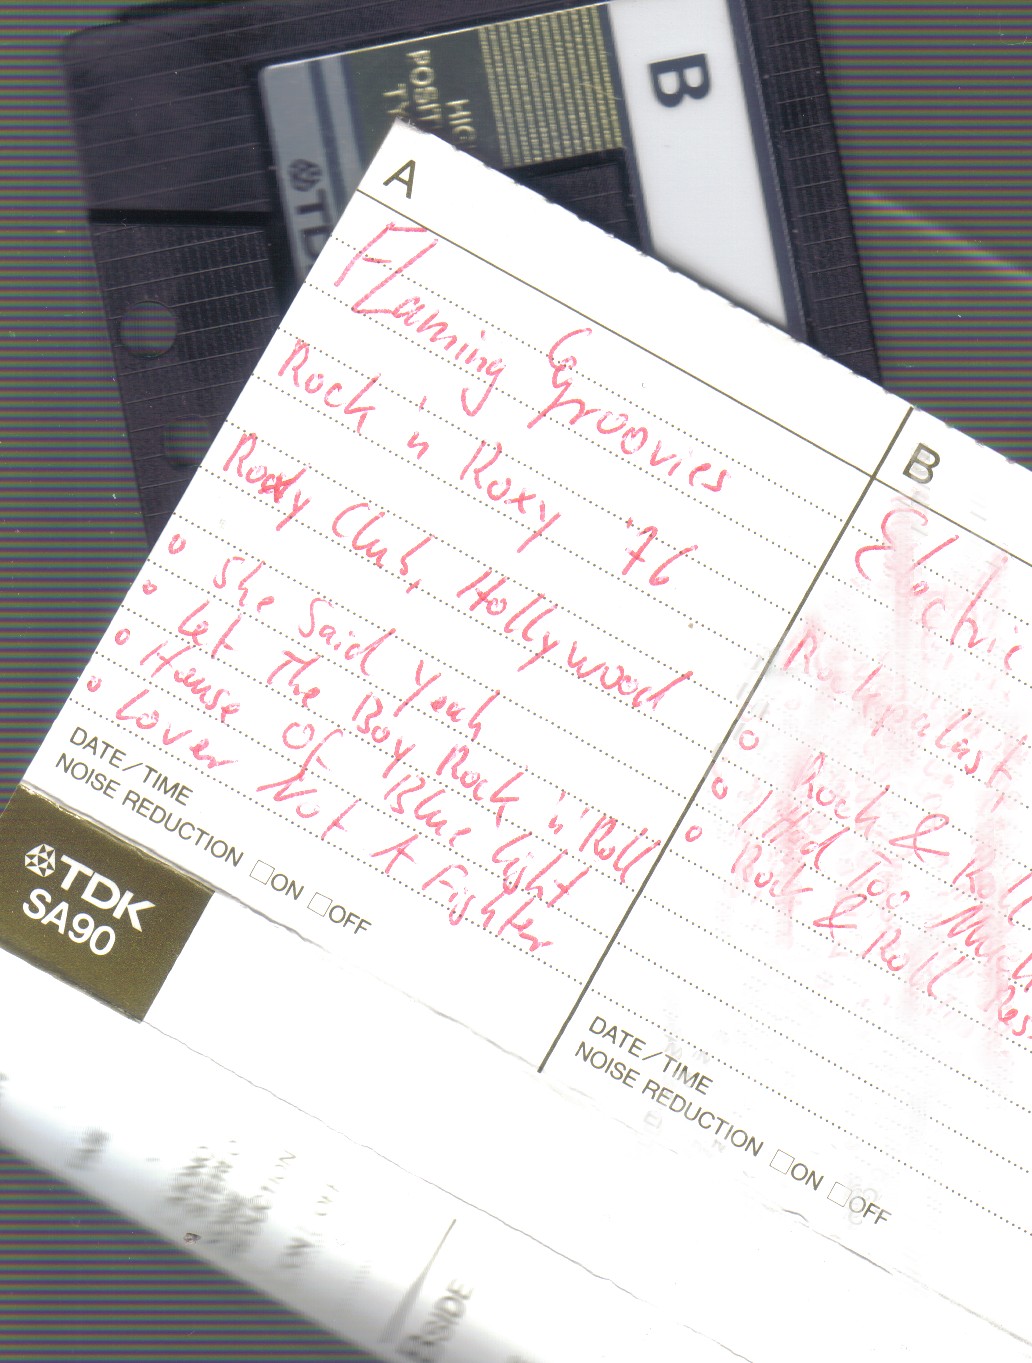 B
HIG
POSIT
TY
TD
A
Flaming Groovies
Rock 'n Roxy '76
Roxy Club, Hollywood
o She Said Yeah
o Let The Boy Rock 'n' Roll
o House Of Blue Light
o Lover Not A Fighter
DATE/TIME
NOISE REDUCTION □ON □OFF
TDK
SA90
B
Electric
Rockpalast
o Rock & Roll
o I Had Too Much
o Rock & Roll Res
DATE/TIME
NOISE REDUCTION □ON □OFF
SIDE